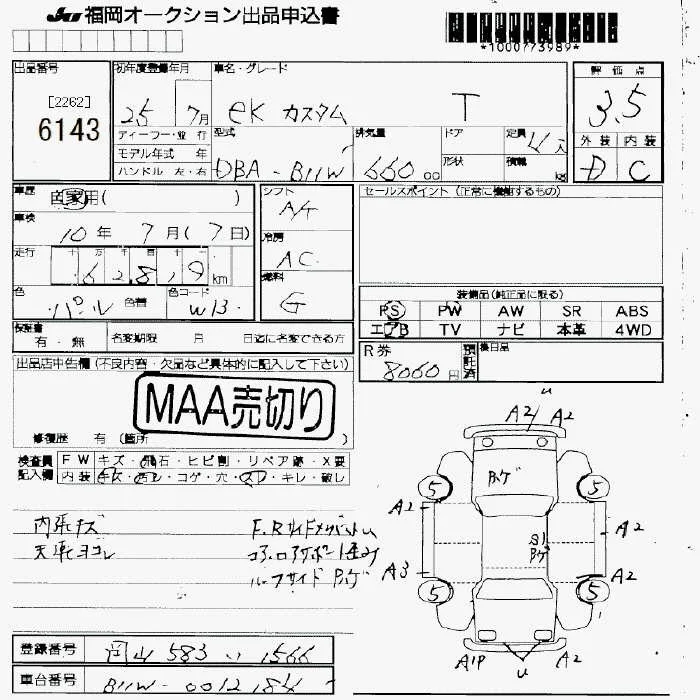 JU 福岡オークション出品申込書
*1000773989*
出品番号
[2262]
6143
初年度登録年月
25年 7月
車名・グレード
eK カスタム T
評価点
3.5
外装 内装
D C
ディーラー・並行
モデル年式 年
ハンドル 左・右
型式
DBA-B11W
排気量
660 cc
ドア
形状
定員 4人
積載 kg
車歴
自家用( )
車検
10年 7月(7日)
走行
十 万 千 百 十 一
6 2,8 1 9 km
色
パール
色替
色コード
W13
シフト
A/T
冷房
AC
燃料
G
セールスポイント (正常に機能するもの)
装備品(純正品に限る)
PS PW AW SR ABS
エアB TV ナビ 本革 4WD
保証書
有・無
名変期限 月 日迄に名変できる方
R券
8060円
預託済
後日品
出品店申告欄 (不良内容・欠品など具体的に記入して下さい)
MAA売切り
修復歴 有 (箇所 )
検査員記入欄
FW キズ・飛石・ヒビ割・リペア跡・X要
内装 キズ・汚レ・コゲ・穴・スレ・キレ・破レ
内張キズ
天張ヨコレ
ルーフサイド Pハゲ
u
A2 A2
Pハゲ
5 5
A2 A2
S1
Pハゲ
A3 A2
5 5
A1P u A2
登録番号
岡山 583 い 1566
車台番号
B11W-0012184